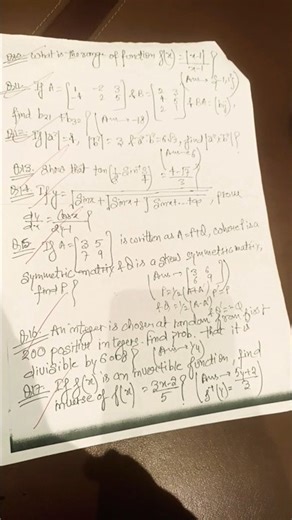 Q.10. What is the range of function f(x) = |x-1|/x-1 ?
(Ans → {-1,1})
Q.11. If A = [1 -2 3; -4 2 5] & B = [2 3; 4 5; 2 1] & BA = (bij),
find b21 + b32 ? (Ans →
Q.12. If |a→| = 4, |b→| = 3 & a→.b→ = 6√3, find |a→×b→| ?
(Ans = 6)
Q.13. Show that tan(1/2 Sin⁻¹ 3/4) = 4-√7/3
Q.14. If y = √Sinx + √Sinx + √Sinx+...to∞, prove
dy/dx = Cosx/2y-1 ?
Q.15. If A = [3 5; 7 9] is written as A = P+Q, where P is a
symmetric matrix & Q is a skew symmetric matrix,
find P. ? (Ans → [3 6; 6 9]
P = 1/2 (A+A'), P' = P
& Q = 1/2 (A-A') & Q' = -Q)
Q.16. An integer is chosen at random from first
200 positive integers. Find prob. that it is
divisible by 6 or 8 ? (Ans → 1/4)
Q.17. If f(x) is an invertible function, find
inverse of f(x) = 3x-2/5 ? (Ans → f⁻¹(y) = 5y+2/3)